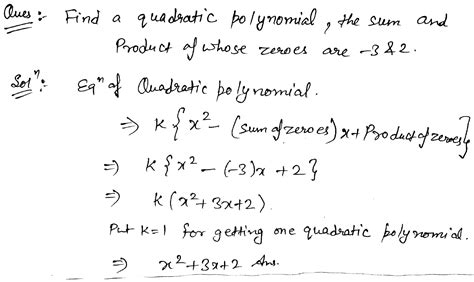 Ques :- Find a quadratic polynomial, the sum and
Product of whose zeroes are -3 & 2.
Solⁿ :- Eqⁿ of Quadratic polynomial.
⇒ K { x² - (sum of zeroes) x + Product of zeroes}
⇒ K { x² - (-3)x + 2 }
⇒ K ( x² + 3x + 2 ).
Put K = 1 for getting one quadratic polynomial.
⇒ x² + 3x + 2 Ans.